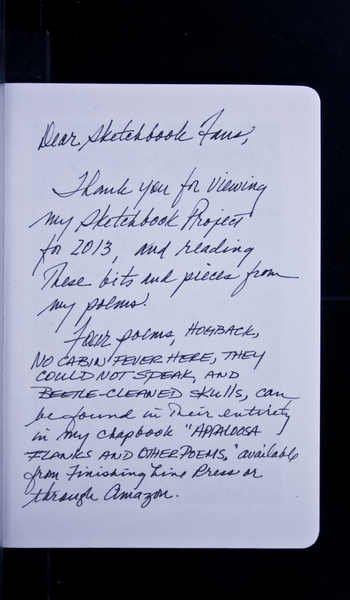 Dear Sketchbook Fans,
Thank you for viewing
my Sketchbook Project
for 2013, and reading
these bits and pieces from
my poems!
Four poems, HOGBACK,
NO CABIN FEVER HERE, THEY
COULD NOT SPEAK, AND
BEETLE-CLEANED SKULLS, can
be found in their entirety
in my chapbook "APPALOOSA
FLANKS AND OTHER POEMS," available
from Finishing Line Press or
through Amazon.